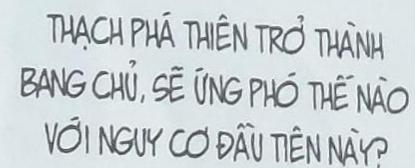 THẠCH PHÁ THIÊN TRỞ THÀNH
BANG CHỦ, SẼ ỨNG PHÓ THẾ NÀO
VỚI NGUY CƠ ĐẦU TIÊN NÀY?